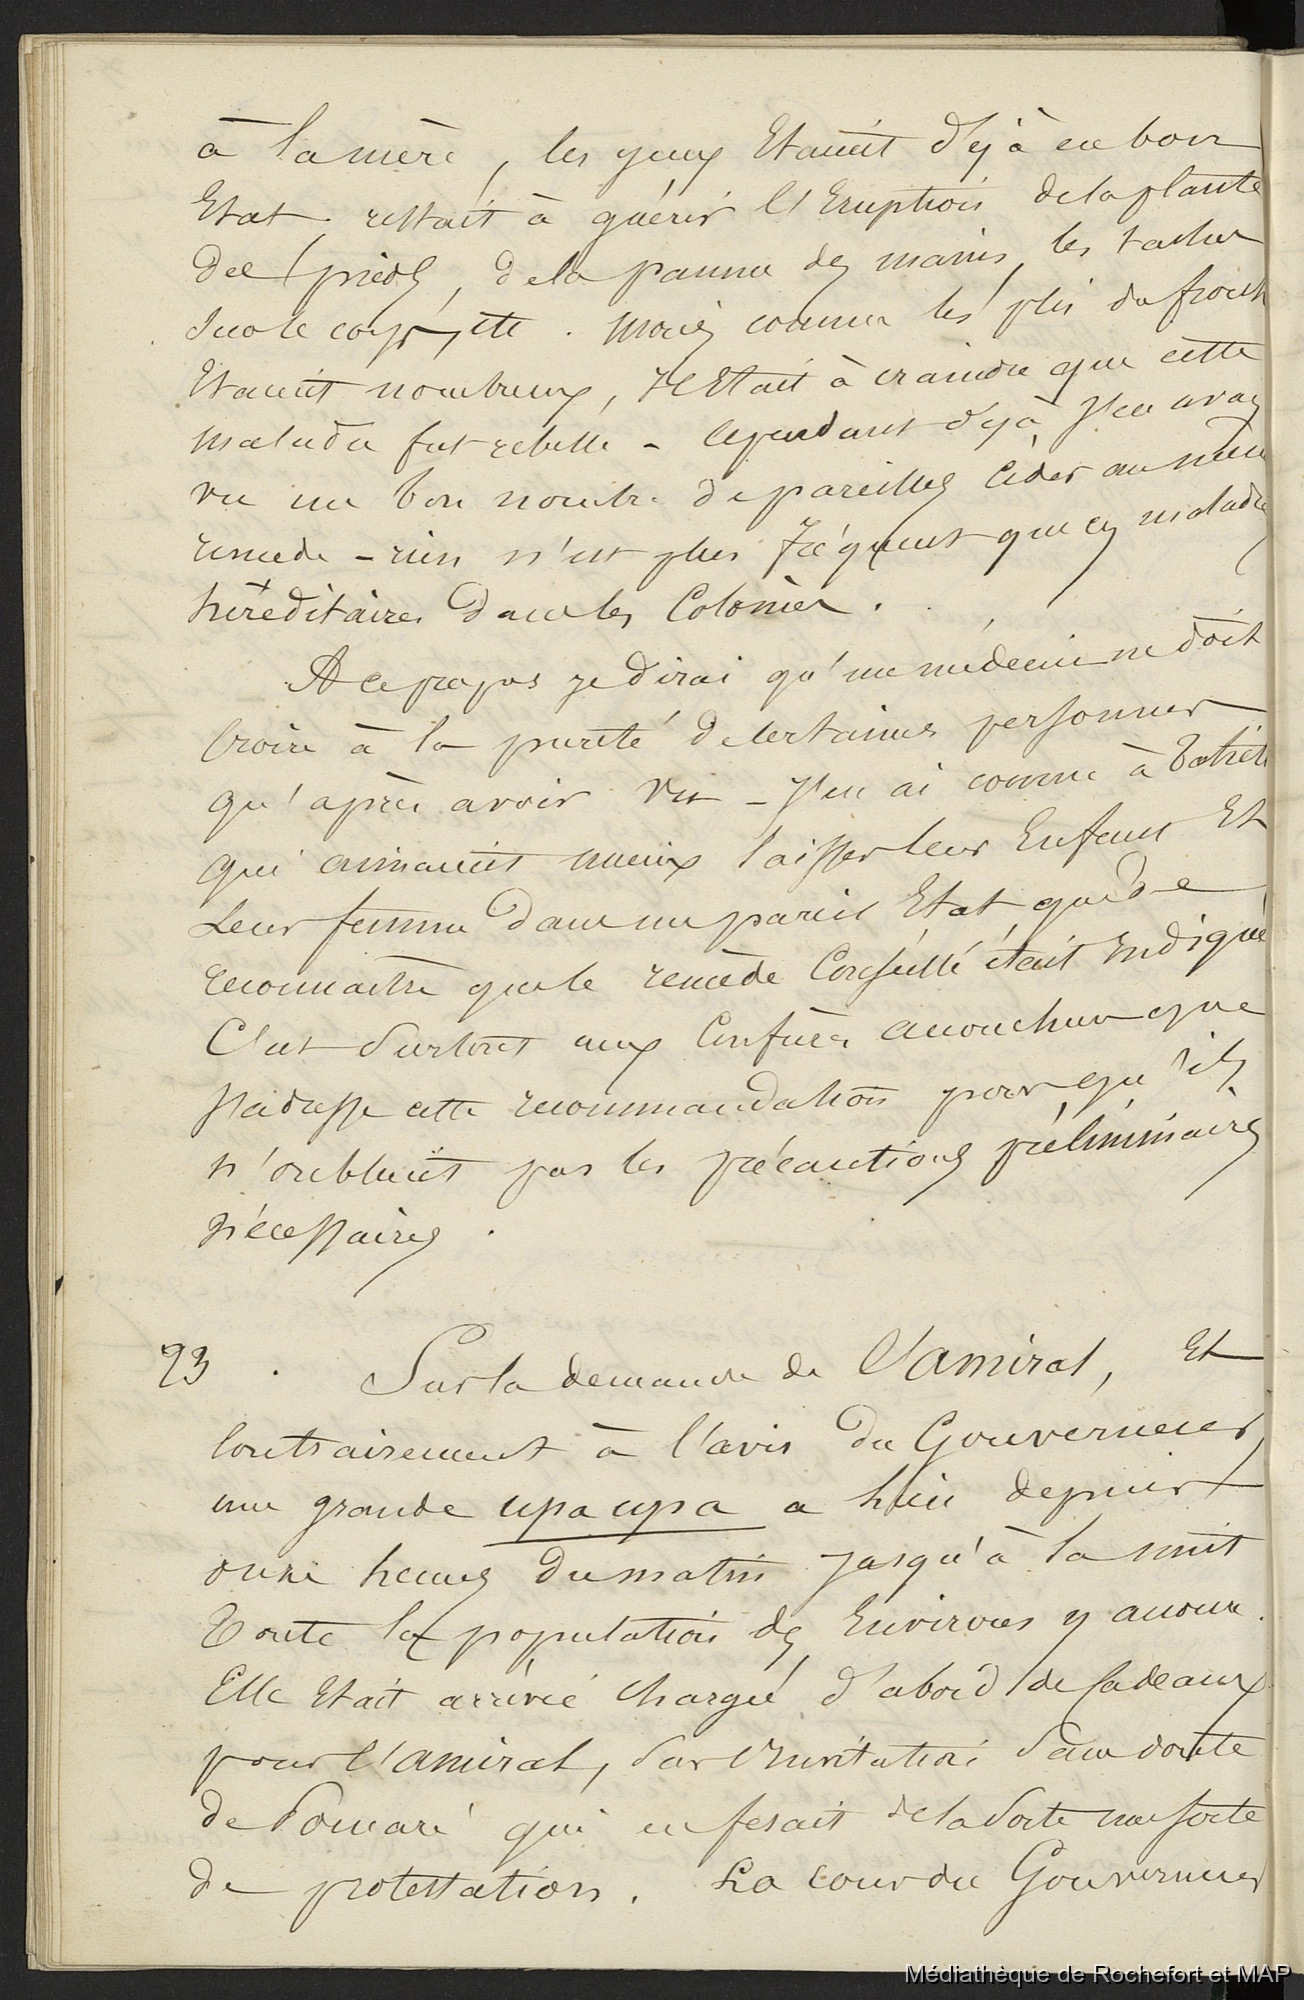 à la mère, les yeux Etaient déjà en bon
Etat restait à guérir l'Eruption de la plante
des pieds, de la paume des mains, les taches
sur le corps, etc. Mais comme les plis du front
Etaient nombreux, il Etait à craindre que cette
maladie fut rebelle - Cependant déjà j'en avais
vu un bon nombre de pareilles céder au même
remede - rien n'est plus fréquent que ces maladies
héréditaires dans les Colonies.
A ce propos je dirai qu'un médecin ne doit
croire à la pureté de certaines personnes
qu'après avoir vu - J'en ai connu à Tahiti
qui aimaient mieux laisser leur Enfant Et
leur femme dans un pareil Etat, que de
reconnaitre que le remède conseillé était indiqué
C'est surtout aux Confrères accoucheurs que
j'adresse cette recommandation pour qu'ils
n'oublient pas les précautions préliminaires
nécessaires.
23. Sur la demande de l'amiral, Et
contrairement à l'avis du Gouverneur,
une grande upa upa a lieu depuis
onze heures du matin jusqu'à la nuit
Toute la population des Environs y accourt.
Elle Etait arrivée chargée d'abord de Cadeaux
pour l'amiral, sur l'invitation sans doute
de Pomaré qui en fesait de la sorte une sorte
de protestation. La cour du Gouverneur
Médiathèque de Rochefort et MAP